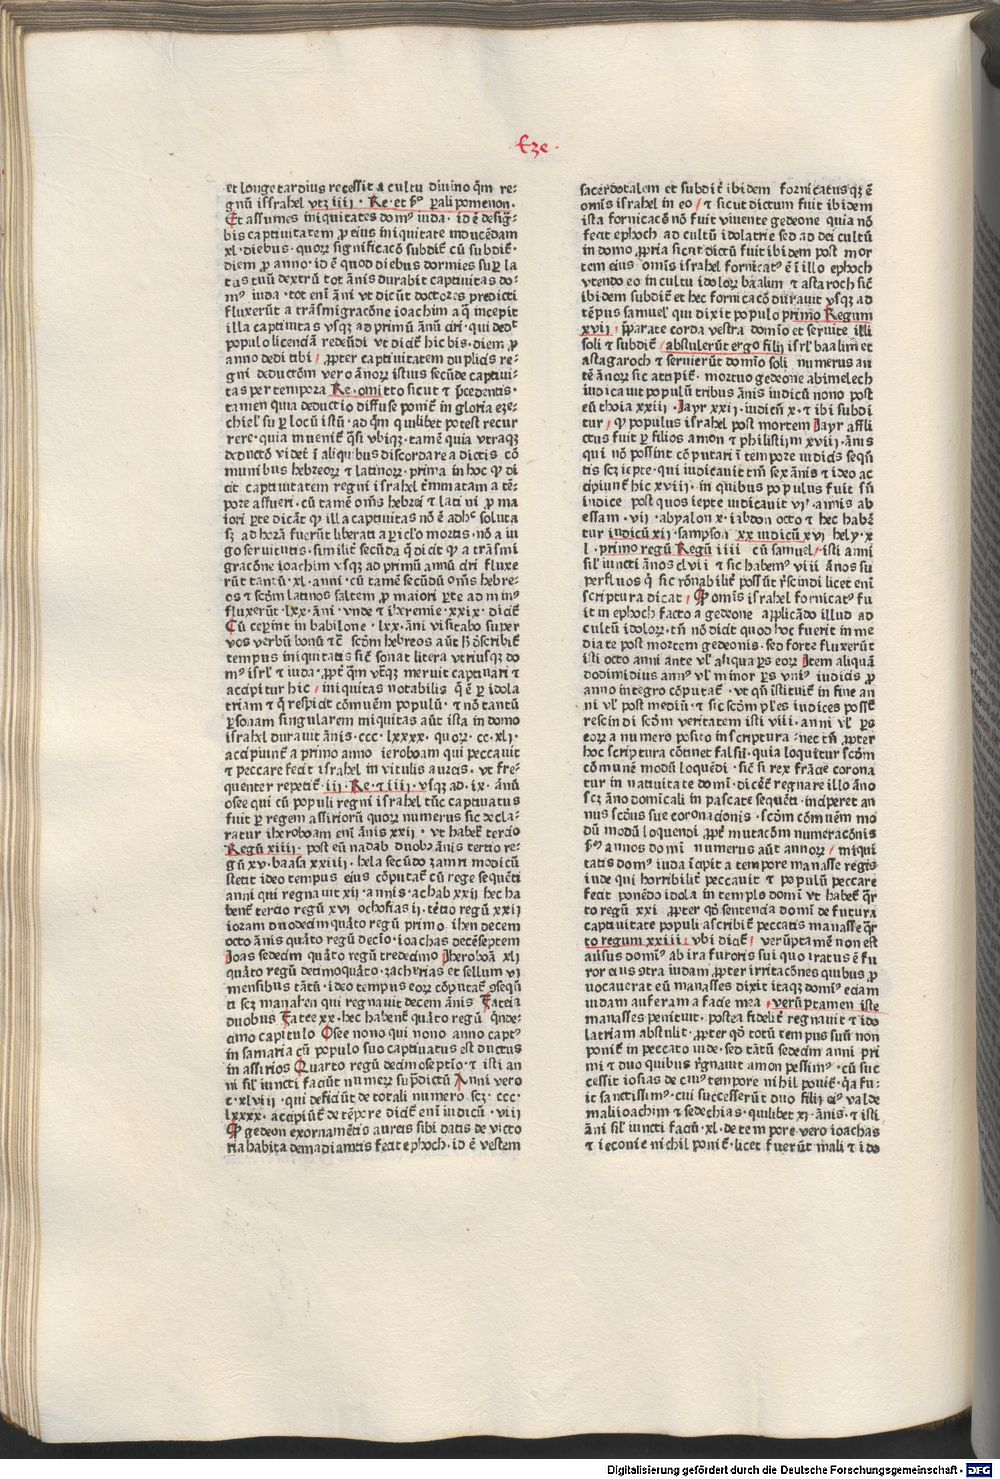 Eze
et longe tardius recessit a cultu diuino qm̄ re⸗
gnū israhel vtꝫ iiij · Re · et sᵒ ꝑalipomenon ·
Et assumes iniquitates domꝰ iuda · id ē desiḡ⸗
bis captiuitatem ꝓ eius iniquitate inducēdam
xl · diebus · quoꝝ significacō subdit̄ cū subdit̄ ·
diem ꝓ anno · id ē quod diebus dormies suꝑ la
tus tuū dextrū tot ānis durabit captiuitas do⸗
mꝰ iuda · tot enī āni vt dicūt doctores predicti
fluxerūt a trāsmigracōne ioachim a q̄ incepit
illa captiuitas vsqꝫ ad primū ānū ciri · qui dedᵗ
populo licenciā redeūdi vt dicit̄ hic bis · diem ꝓ
anno dedi tibi / ꝓpter captiuitatem duplicis re⸗
gni deductōm vero ānoꝝ istius secūde captiui⸗
tas per tempora Re · omitto sicut ⁊ p̄cedentis ·
tamen quia deductio diffuse ponit̄ in gloria eze⸗
chiel̓ suꝑ locū istū · ad qm̄ quilibet potest recur
rere · quia inuenit̄ q̄si vbiqꝫ · tamē quia vtraqꝫ
deductō videt̄ ī aliquibus discordare a dictis cō
munibus hebreoꝝ ⁊ latinoꝝ · prima in hoc ꝙ di
cit captiuitatem regni israhel tmīnatam a tē⸗
pore assueri · cū tamē om̄s hebrei ⁊ latini ꝓ ma
iori ꝑte dicāt ꝙ illa captiuitas nō ē adhᶜ soluta
sꝫ ad horā fuerūt liberati a ꝑiclo mortis · nō a iu
go seruitutis · similit̄ secūda q̄ dicit ꝙ a trāsmi
gracōne ioachim vsqꝫ ad primū annū ciri fluxe
rūt tantū · xl · anni · cū tamē secūdū om̄s hebre⸗
os ⁊ scd̄m latinos saltem ꝓ maiori ꝑte ad minꝰ
fluxerūt · lxx · āni · vnde ⁊ iheremie · xxix · dicit̄
Cū ceperint in babilone · lxx · āni visitabo super
vos verbū bonū ⁊c̄ scd̄m hebreos aūt
tempus iniquitatis sic̄ sonat litera vtriusqꝫ do
mꝰ isrl̄ ⁊ iuda · ꝓpt̄ qm̄ vtꝫqꝫ meruit captiuari ⁊
accipitur hic / iniquitas notabilis q̄ ē ꝑ idola
triam ⁊ q̄ respicit cōmuēm populū · ⁊ nō tantū
ꝑsonam singularem iniquitas aūt ista in domo
israhel durauit ānis · ccc · lxxxx · quoꝝ · cc · xlj ·
accipiunt̄ a primo anno ieroboam qui peccauit
⁊ peccare fecit israhel in vitulis aureis · vt fre⸗
quenter repetit̄ · iij · Re · ⁊ iiij · vsqꝫ ad · ix · ānū
osee qui cū populi regni israhel tūc captiuatus
fuit ꝑ regem assirioꝝ quoꝝ numerus sic decla⸗
ratur iheroboam enī ānis xxij · vt habet̄ tercio
Regū xiiij · post eū nadab duobꝫ ānis tertio re⸗
gū xv · baasa xxiiij · hela secūdo zamri modicū
stetit ideo tempus eius cōputat̄ cū rege sequēti
anni qui regnauit xij · annis · achab xxij hec ha
bent̄ tercio regū xvj ochosias ij · tētio regū xxij
ioram duodecim quāto regū primo ihen decem
octo ānis quāto regū decīo · ioachas decēseptem
Joas sedecim quāto regū tredecimo Jheroboā xlj
quāto regū decimoquāto · zacherias et sellum vj
mensibus tātū · ideo tempus eoꝝ cōputat̄ ꝯseqū
ti scꝫ manahen qui regnauit decem ānis Fateia
duobus Fatee xx · hec habent̄ quāto regū q̄nde⸗
cimo capitulo Osee nono qui nono anno captꝰ
in samaria cū populo suo captiuatus est ductus
in assirios Quarto regū decimoseptīo · ⁊ isti an
ni sil̓ iuncti faciūt numeꝝ sup̄dictū Anni vero
c · xlviij · qui deficiūt de totali numero scꝫ · ccc ·
lxxxx · accipiūt̄ de tēpore dicit̄ enī iudicū · viij
Ꝙ gedeon exornamētis aureis sibi datis de victo
ria habita de madianitis fecit ephoch · id ē vestem
sacerdotalem et subdit̄ ibidem fornicatusqꝫ ē
om̄is israhel in eo / ⁊ sicut dictum fuit ibidem
ista fornicacō nō fuit viuente gedeone quia nō
fecit ephoch ad cultū idolatrie sed ad dei cultū
in domo ꝓpria sicut dictū fuit ibidem post mor
tem eius om̄is israhel fornicatꝰ ē ī illo ephoch
vtendo eo in cultu idoloꝝ baalim ⁊ astaroch sic̄
ibidem subdit̄ et hec fornicacō durauit vsqꝫ ad
tēpus samuel̓ qui dixit populo primo Regum
xvij / p̄parate corda vestra domīo et seruite illi
soli ⁊ subdit̄ / abstulerūt ergo filij isrl̄ baalim et
astagaroch ⁊ seruierūt domīo soli numerus au
tē ānoꝝ sic accipit̄ · mortuo gedeone abimelech
iudicauit populū tribus ānis iudicū nono post
eū thola xxiij · Jayr xxij · iudicū x · ⁊ ibi subdi
tur / ꝙ populus israhel post mortem Jayr affli
ctus fuit ꝑ filios amon ⁊ philistijm xviij · ānis
qui nō possint cōputari ī tempore iudicis seqū
tis scꝫ iepte · qui iudicauit tm̄ sex ānis ⁊ ideo ac
cipiunt̄ hic xviij · in quibus populus fuit sn̄
iudice post quos iepte iudicauit vjᵗ · annis ab
essam · vij · abyalon x · iabdon octo ⁊ hec habē
tur iudicū xij · sampson xx iudicū xvj hely · x
l · primo regū Regū iiij cū samuel / isti anni
sil̓ iuncti ānos clvij ⁊ sic habemꝰ viij ānos su
perfluos q̄ sic rōnabilit̄ possūt rescindi licet enī
scriptura dicat / Ꝙ om̄is israhel fornicatꝰ fu
it in ephoch facto a gedeone applicādo illud ad
cultū idoloꝝ · tn̄ nō dicit quod hoc fuerit in me
diate post mortem gedeonis · sed forte fluxerūt
isti octo anni ante vl̓ aliqua ꝑs eoꝝ Jtem aliquā
do dimidius annꝰ vl̓ minor ꝑs vniꝰ iudicis ꝓ
anno integro cōputat̄ · vt qn̄ īstituit̄ in fine an
ni vl̓ post mediū · ⁊ sic scd̄m pl̓es iudices posset̄
rescindi scd̄m veritatem isti viij · anni vl̓ ꝑs
eoꝝ a numero posito in scriptura · nec tn̄ ꝓpter
hoc scriptura cōtinet falsū · quia loquitur scd̄m
cōmunē modū loquēdi · sic̄ si rex frācie corona
tur in natiuitate domī · dicet̄ regnare illo āno
scꝫ āno domicali in pascate sequēti · inciperet an
nus scd̄us sue coronacionis · scd̄m cōmuēm mo
dū modū loquendi ꝓpt̄ mutacōm numeracōnis
sᵐ annos domī numerus aūt annoꝝ / iniqui
tatis domꝰ iuda īcipit a tempore manasse regis
iude qui horribilit̄ peccauit ⁊ populū peccare
fecit ponēdo idola in templo domī vt habet̄ q̄r
to regū xxj ꝓpter qd̄ sentencia domī de futura
captiuitate populi ascribit̄ peccatis manasse q̄r
to regum xxiij · vbi dicit̄ / verūptamē non est
aūsus domīꝰ ab ira furoris sui quo iratus ē fu
ror eius ꝯtra iudam ꝓpter irritacōnes quibus ꝓ
uocauerat eū manasses dixit itaqꝫ domīꝰ eciam
iudam auferam a facie mea / verūptamen iste
manasses penituit · postea fidelit̄ regnauit ⁊ ido
latriam abstulit · ꝓpter qd̄ totū tempus suū non
ponit̄ in peccato iude · sed tātū sedecim anni pri
mi ⁊ duo quibus regnauit amon pessimꝰ · cū suc
cessit iosias de cuiꝰ tempore nihil ponit̄ · q̄a fu⸗
it sanctissimꝰ · cui successerūt duo filij eiꝰ valde
mali ioachim ⁊ sedechias · quilibet xj · ānis · ⁊ isti
āni sil̓ iuncti faciūt · xl · de tempore vero ioachas
⁊ ieconie nichil ponit̄ · licet fuerūt mali ⁊ ido
Digitalisierung gefördert durch die Deutsche Forschungsgemeinschaft - DFG